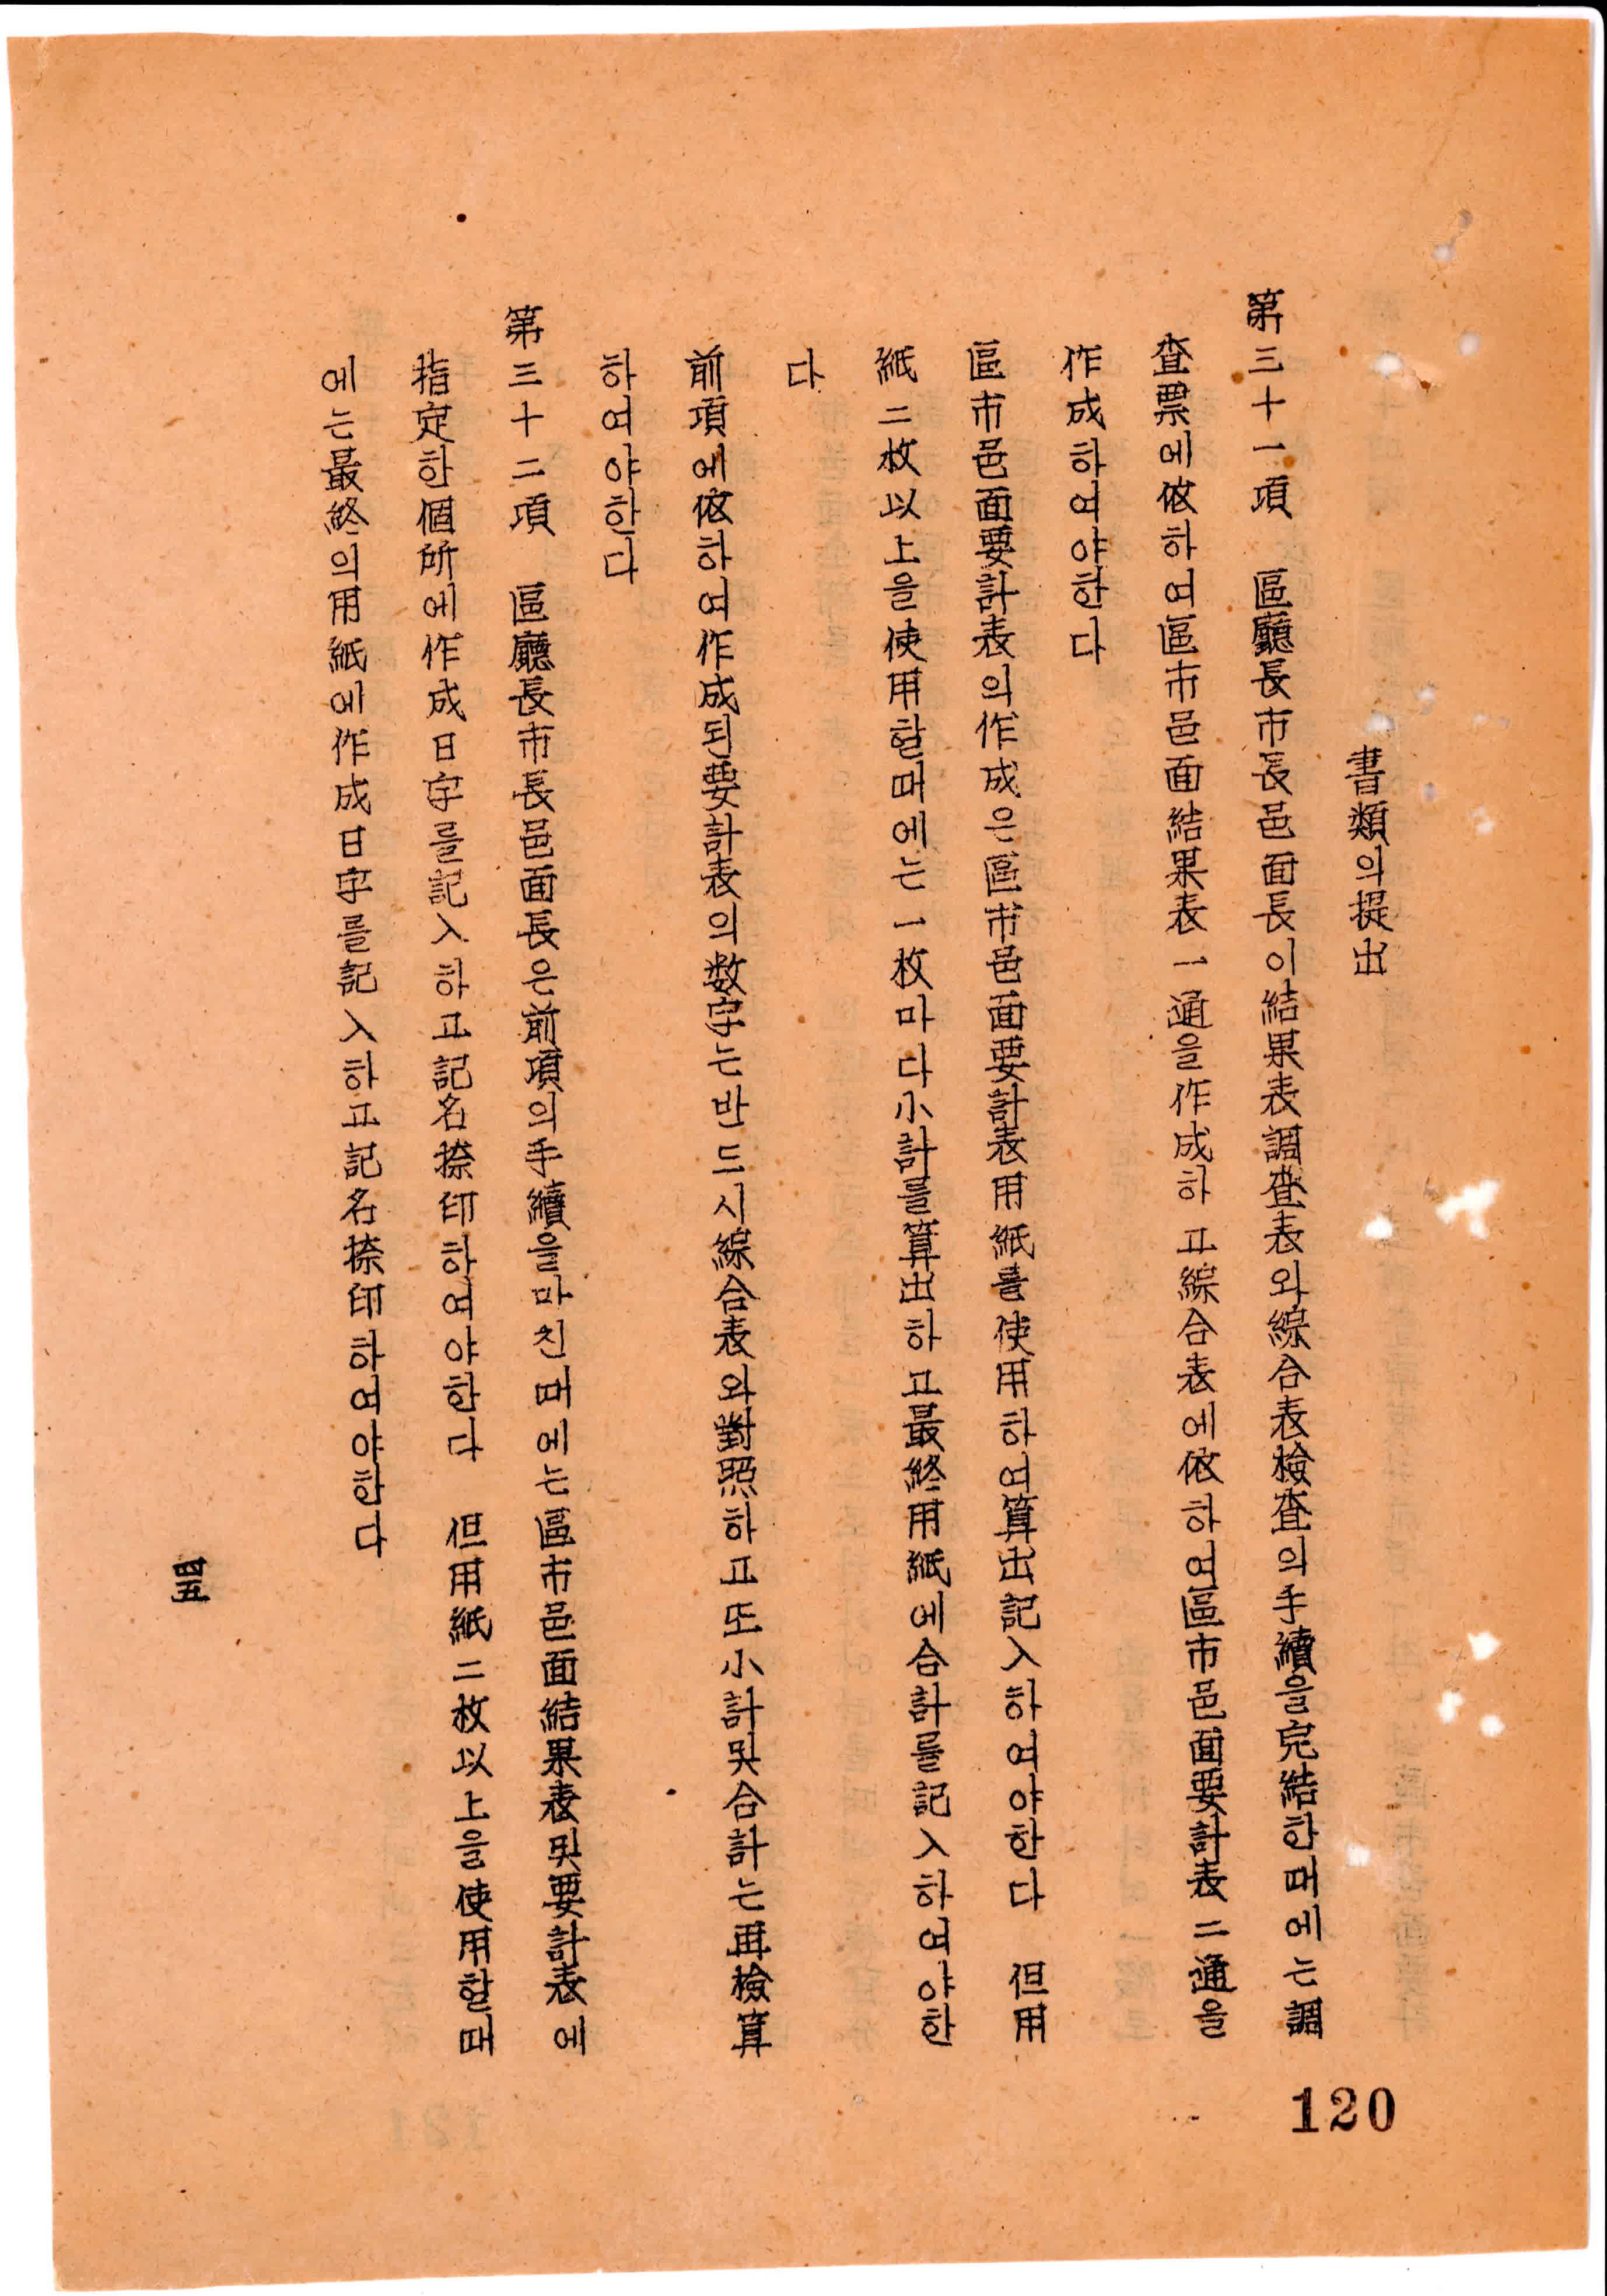 書類의提出
第三十一項 區廳長市長邑面長이結果表調査表와綜合表檢査의手續을完結한때에는調
査票에依하여區市邑面結果表一通을作成하고綜合表에依하여區市邑面要計表二通을
作成하여야한다
區市邑面要計表의作成은區市邑面要計表用紙를使用하여算出記入하여야한다 但用
紙二枚以上을使用할때에는一枚마다小計를算出하고最終用紙에合計를記入하여야한
다
前項에依하여作成된要計表의数字는반드시綜合表와對照하고또小計및合計는再檢算
하여야한다
第三十二項 區廳長市長邑面長은前項의手續을마친때에는區市邑面結果表및要計表에
指定한個所에作成日字를記入하고記名捺印하여야한다 但用紙二枚以上을使用할때
에는最終의用紙에作成日字를記入하고記名捺印하여야한다
四五
120